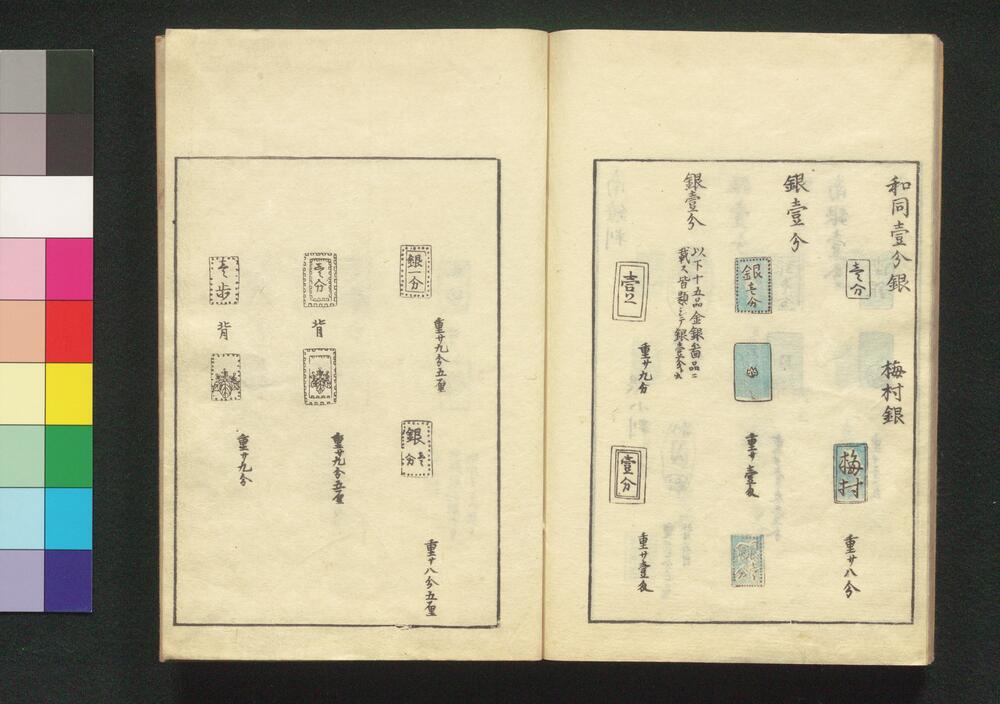 和同壹分銀
壱分
梅村銀
梅村
重廾八分
銀壹分
銀壱分
重廾壹分
銀壹分
以下十五品金銀圖品ニ
載ス皆類シテ銀壹分ナリ
壹
重廾九分
壹分
重廾壹分
銀一分
重廾九分五厘
銀壱分
重廾八分五厘
壱分
背
重廾九分五厘
壱歩
背
重廾九分